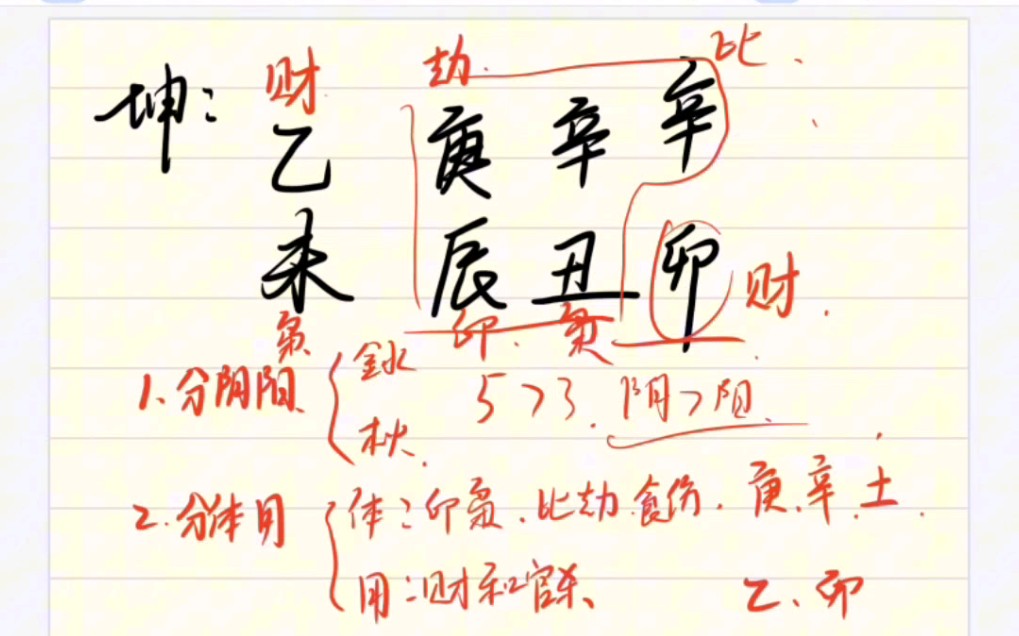 财 劫. 比.
坤: 乙 庚 辛 辛
未 辰 丑 卯 财.
枭 印. 枭
金水
1.分阴阳. 5>3. 阴>阳.
木火.
2.分体用 体:印枭.比劫.食伤. 庚.辛.土.
用:财和官杀、 乙、卯